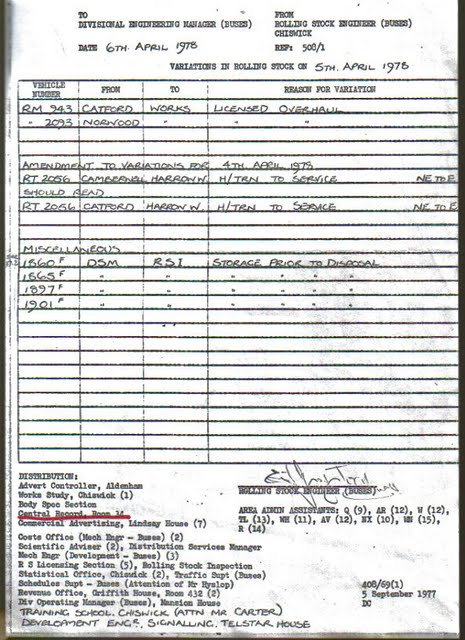 TO
DIVISIONAL ENGINEERING MANAGER (BUSES)
FROM
ROLLING STOCK ENGINEER (BUSES)
CHISWICK
DATE 6TH. APRIL 1978
REF: 508/1
VARIATIONS IN ROLLING STOCK ON 5TH. APRIL 1978
VEHICLE NUMBER FROM TO REASON FOR VARIATION
RM 943 CATFORD WORKS LICENSED OVERHAUL
" 2093 NORWOOD " " "
AMENDMENT TO VARIATIONS FOR 4TH APRIL 1978
RT 2056 CAMBERWELL HARROW W. H/TRN TO SERVICE NE TO E
SHOULD READ
RT 2056 CATFORD HARROW W. H/TRN TO SERVICE NE TO E
MISCELLANEOUS
1860 F DSM RSI STORAGE PRIOR TO DISPOSAL
1865 F " " " " " "
1897 F " " " " " "
1901 F " " " " " "
DISTRIBUTION:
Advert Controller, Aldenham
Works Study, Chiswick (1)
Body Spec Section
Central Record, Room 14
Commercial Advertising, Lindsay House (7)
Costs Office (Mech Engr - Buses) (2)
Scientific Adviser (2), Distribution Services Manager
Mech Engr (Development - Buses) (3)
R S Licensing Section (5), Rolling Stock Inspection
Statistical Office, Chiswick (2), Traffic Supt (Buses)
Schedules Supt - Buses (Attention of Mr Hyslop)
Revenue Office, Griffith House, Room 432 (2)
Div Operating Manager (Buses), Mansion House
TRAINING SCHOOL, CHISWICK (ATTN MR. CARTER)
DEVELOPMENT ENGR, SIGNALLING, TELSTAR HOUSE
ROLLING STOCK ENGINEER (BUSES)
AREA ADMIN ASSISTANTS: Q (9), AR (12), W (12),
TL (13), WH (11), AV (12), NX (10), WN (15),
R (14)
408/69(1)
5 September 1977
DC